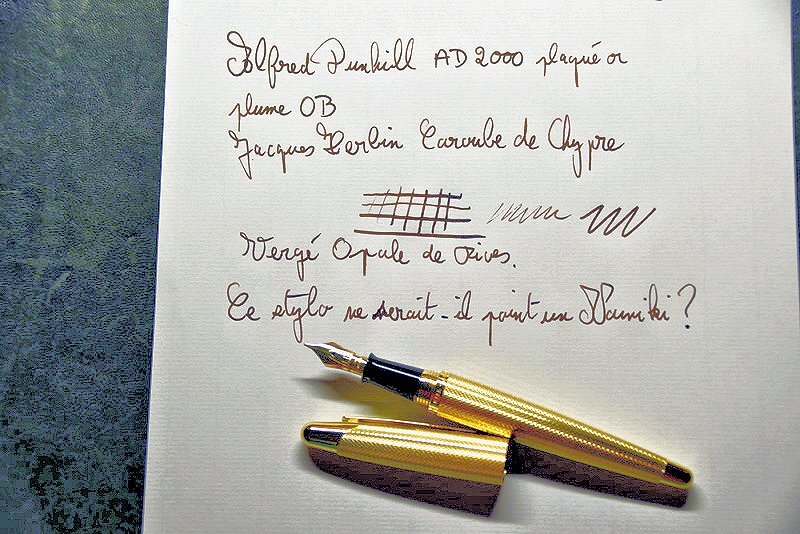 Alfred Dunhill AD 2000 plaqué or
plume OB
Jacques Herbin Caroube de Chypre
Vergé Opale de Rives.
Ce stylo ne serait-il point un Namiki ?